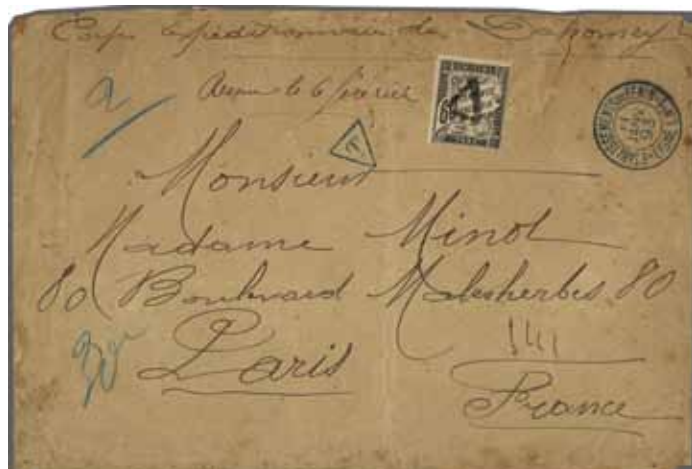 Corps Expéditionnaire du Dahomey
a
le 6 février
60
T
Monsieur
Madame Minot
80 Boulevard Malesherbes 80
30
Paris
France